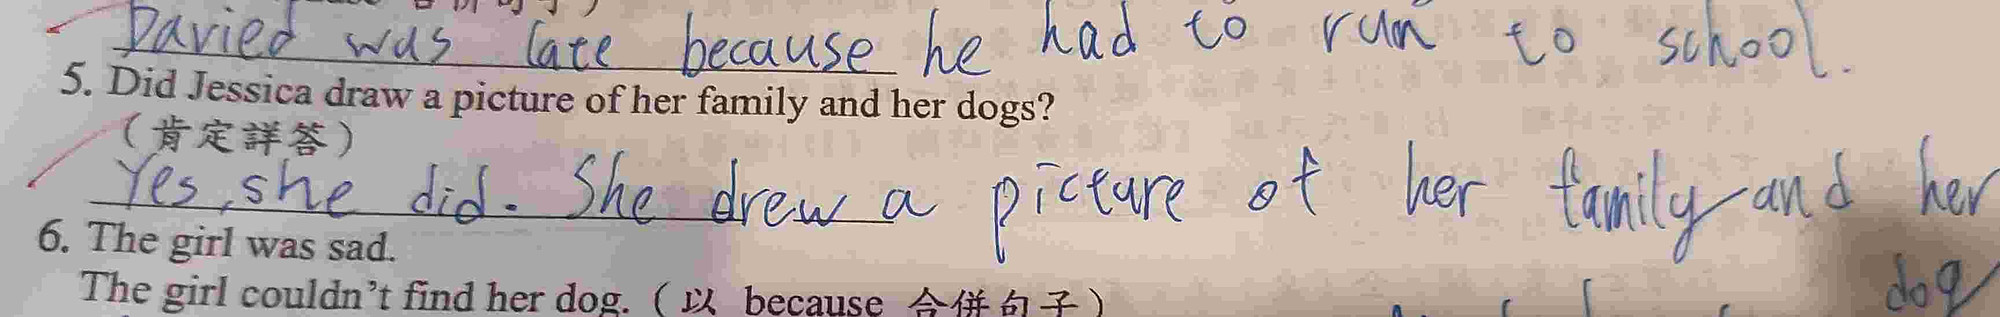 合併句子）
Davied was late because he had to run to school.
5. Did Jessica draw a picture of her family and her dogs?
（肯定詳答）
Yes, she did. She drew a picture of her family and her
dog
6. The girl was sad.
The girl couldn't find her dog.（以 because 合併句子）